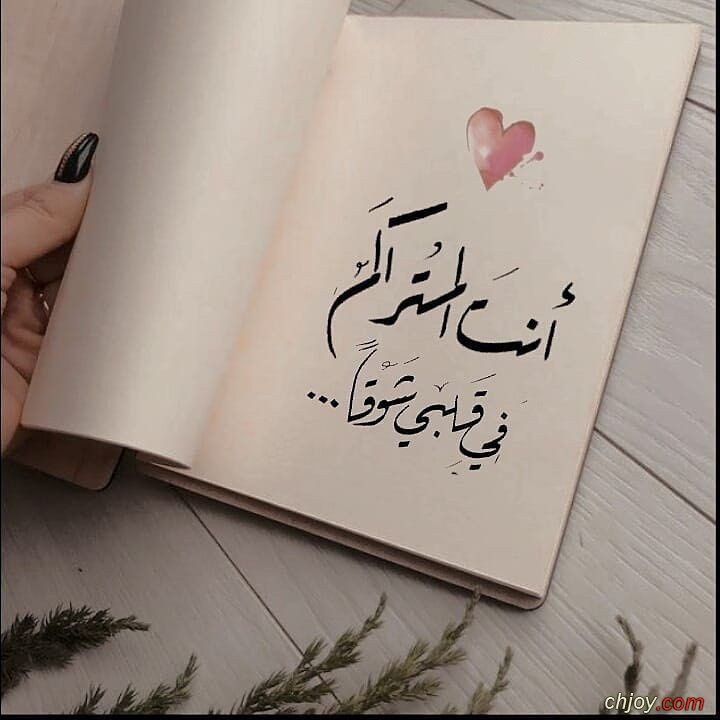 أنتَ المُتراكَمْ
فِي قَلبي شَوْقاً...
chjoy.com